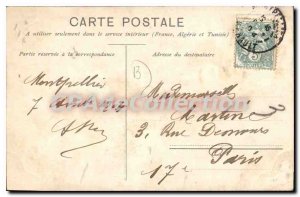 CARTE POSTALE
A utiliser seulement dans le service intérieur (France, Algérie et Tunisie)
Partie réservée à la correspondance
Adresse du destinataire
B
Montpellier
7
Mademoiselle
Martine
3, Rue Demours
17e
Paris